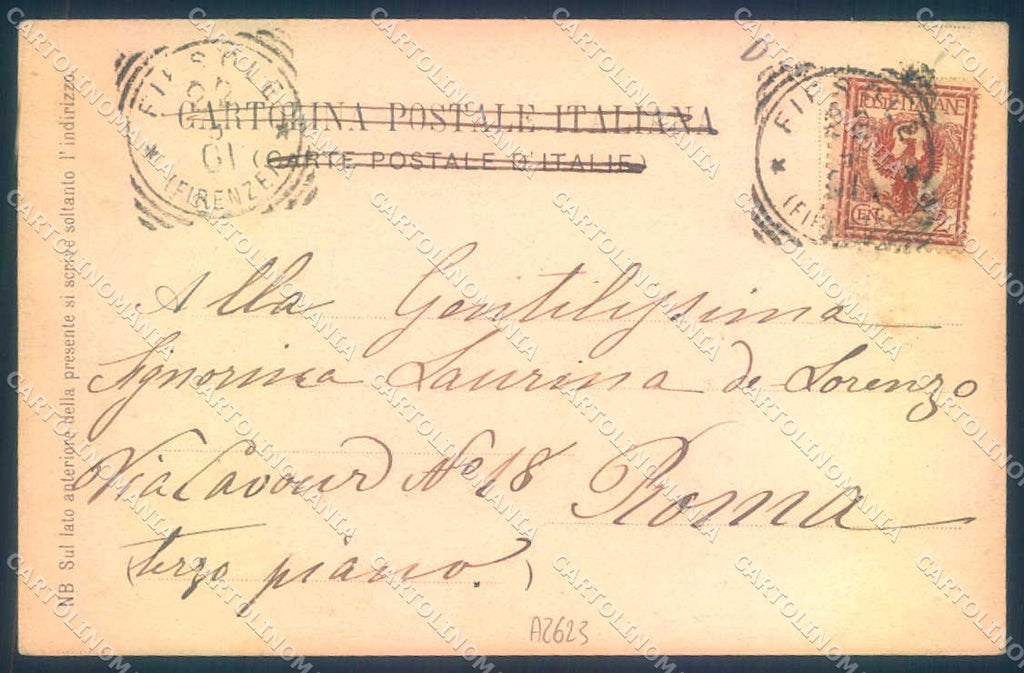 FIESOLE
(FIRENZE)
01
CARTOLINA POSTALE ITALIANA
(CARTE POSTALE D'ITALIE)
D
FIESOLE
POSTE ITALIANE
CEN. 2
Alla Gentilissima
Signorina Laurina de Lorenzo
Via Cavour No 18 Roma
(terzo piano.)
NB Sul lato anteriore della presente si scrive soltanto l'indirizzo.
A2623
CARTOLINOMANIA